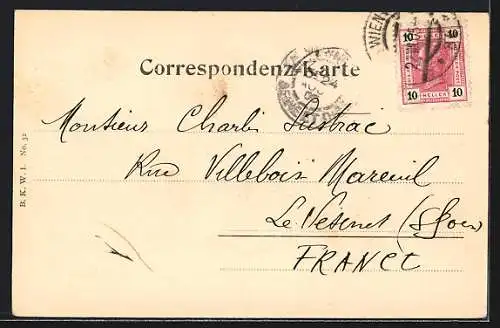 WIEN
10 10
HELLER
10 10
Correspondenz-Karte
Monsieur Charles
Rue Villebois Mareuil
Le Vésinet (S
FRANCE
B. K. W. I. No. 32